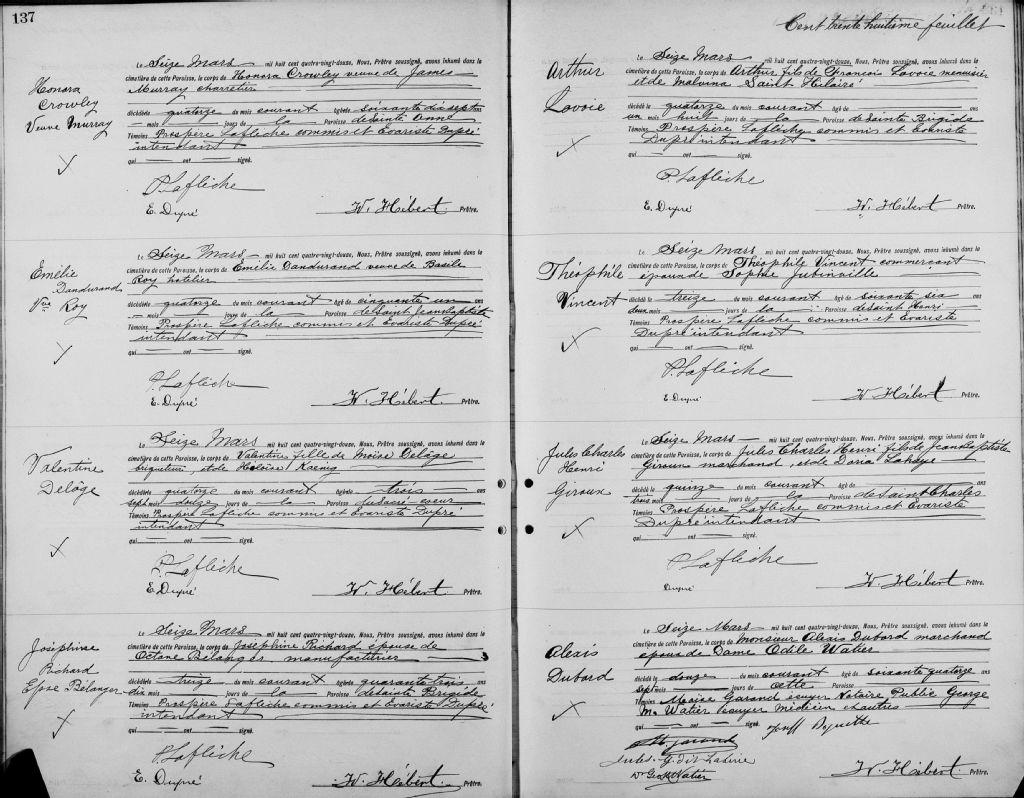 137
Honora
Crowley
Veuve Murray
Le Seize Mars mil huit cent quatre-vingt-douze, Nous, Prêtre soussigné, avons inhumé dans le
cimetière de cette Paroisse, le corps de Honora Crowley veuve de James
Murray charretier
décédée le quatorze du mois courant âgée de soixante dix sept ans
mois jours de la Paroisse de Sainte Anne
Témoins Prospère Laflèche commis et Evariste Dupré
intendant
qui ont signé.
P. Laflèche
E. Dupré W. Hébert Prêtre.
Emélie
Dandurand
Vve Roy
Le Seize Mars mil huit cent quatre-vingt-douze, Nous, Prêtre soussigné, avons inhumé dans le
cimetière de cette Paroisse, le corps de Emélie Dandurand veuve de Basile
Roy hôtelier
décédée le quatorze du mois courant âgé de cinquante un ans
mois jours de la Paroisse de Saint Jean Baptiste
Témoins Prospère Laflèche commis et Evariste Dupré
intendant
qui ont signé.
P. Laflèche
E. Dupré W. Hébert Prêtre.
Valentine
Delâge
Le Seize Mars mil huit cent quatre-vingt-douze, Nous, Prêtre soussigné, avons inhumé dans le
cimetière de cette Paroisse, le corps de Valentine fille de Moïse Delâge
et de Héloïse
décédée le quatorze du mois courant âgée de trois ans
sept mois douze jours de la Paroisse du Sacré coeur
Témoins Prospère Laflèche commis et Evariste Dupré
intendant
qui ont signé.
P. Laflèche
E. Dupré W. Hébert Prêtre.
Joséphine
Richard
Epse Bélanger
Le Seize Mars mil huit cent quatre-vingt-douze, Nous, Prêtre soussigné, avons inhumé dans le
cimetière de cette Paroisse, le corps de Joséphine Richard épouse de
Octave Bélanger manufacturier
décédée le treize du mois courant âgée de quarante trois ans
dix mois jours de la Paroisse de Sainte Brigide
Témoins Prospère Laflèche commis et Evariste Dupré
intendant
qui ont signé.
P. Laflèche
E. Dupré W. Hébert Prêtre.
Cent trente huitième feuillet
Arthur
Lavoie
Le Seize Mars mil huit cent quatre-vingt-douze, Nous, Prêtre soussigné, avons inhumé dans le
cimetière de cette Paroisse, le corps de Arthur fils de François Lavoie menuisier
et de Malvina Saint Hilaire
décédé le quatorze du mois courant âgé de ans
un mois huit jours de la Paroisse de Sainte Brigide
Témoins Prospère Laflèche commis et Evariste
Dupré intendant
qui ont signé.
P. Laflèche
E. Dupré W. Hébert Prêtre.
Théophile
Vincent
Le Seize Mars mil huit cent quatre-vingt-douze, Nous, Prêtre soussigné, avons inhumé dans le
cimetière de cette Paroisse, le corps de Théophile Vincent commerçant
époux de Sophie Jubinville
décédé le treize du mois courant âgé de soixante six ans
deux mois jours de la Paroisse de Saint Henri
Témoins Prospère Laflèche commis et Evariste
Dupré intendant
qui ont signé.
P. Laflèche
E. Dupré W. Hébert Prêtre.
Jules Charles
Henri
Giroux
Le Seize Mars mil huit cent quatre-vingt-douze, Nous, Prêtre soussigné, avons inhumé dans le
cimetière de cette Paroisse, le corps de Jules Charles Henri fils de Jean Baptiste
Giroux marchand, et de Doria Lahaye
décédé le quinze du mois courant âgé de ans
trois mois jours de la Paroisse de Saint Charles
Témoins Prospère Laflèche commis et Evariste
Dupré intendant
qui ont signé.
P. Laflèche
Dupré W. Hébert Prêtre.
Alexis
Dubord
Le Seize Mars mil huit cent quatre-vingt-douze, Nous, Prêtre soussigné, avons inhumé dans le
cimetière de cette Paroisse, le corps de Monsieur Alexis Dubord marchand
époux de Dame Odile Watier
décédé le douze du mois courant âgé de soixante quatorze ans
sept mois jours de cette Paroisse
Témoins Moïse Garand écuyer Notaire Public George
M. Watier écuyer médecin et autres
qui ont signé.
W. Hébert Prêtre.